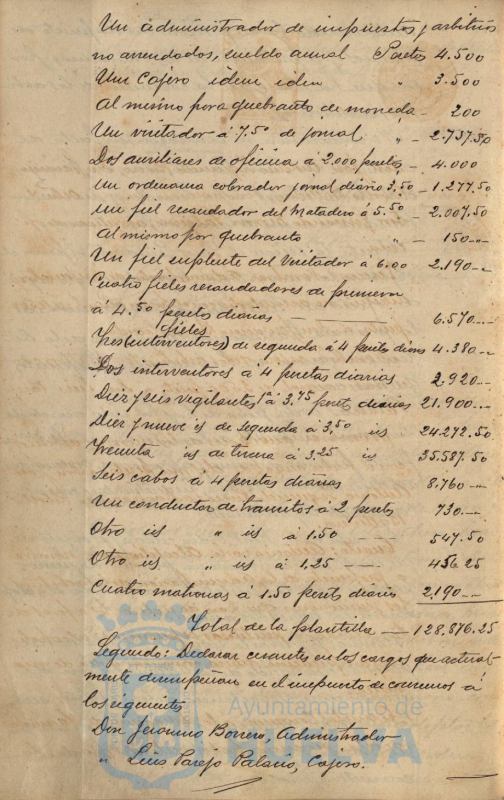 Un administrador de impuestos y arbitrios
no arrendados, sueldo anual Pesetas 4.500
Un Cajero idem idem " 3.500
Al mismo para quebranto de moneda - 200
Un visitador á 7.50 de jornal " - 2.737.50
Dos auxiliares de oficina á 2.000 pesetas - 4.000
Un ordenanza cobrador jornal diario 3,50 - 1.277.50
Un fiel recaudador del Matadero á 5.50 - 2.007.50
Al mismo por quebranto " - 150 --
Un fiel suplente del Visitador á 6.00 2.190 --
Cuatro fieles recaudadores de primera
á 4.50 pesetas diarias —— 6.570 --
fieles
Tres (interventores) de segunda á 4 pesetas diarias 4.380 --
Dos interventores á 4 pesetas diarias 2.920 --
Diez y seis vigilantes 1ª á 3,75 pesets diarias 21.900 --
Diez y nueve is de segunda á 3,50 is 24.272.50
Treinta is de tercera á 3.25 is 35.587.50
Seis cabos á 4 pesetas diarias 8.760 --
Un conductor de transitos á 2 pesets 730 --
Otro is " is á 1.50 --- 547.50
Otro is " is á 1,25 --- 456 25
Cuatro matronas á 1.50 pesets diarias 2.190 --
Total de la plantilla — 128.876.25
Segundo: Declarar cesantes en los cargos que actual-
mente desempeñan en el impuesto de consumos á
los siguientes
Don Jeronimo Borrero, Administrador
" Luis Parejo Palacio, Cajero.
Ayuntamiento de
HUELVA